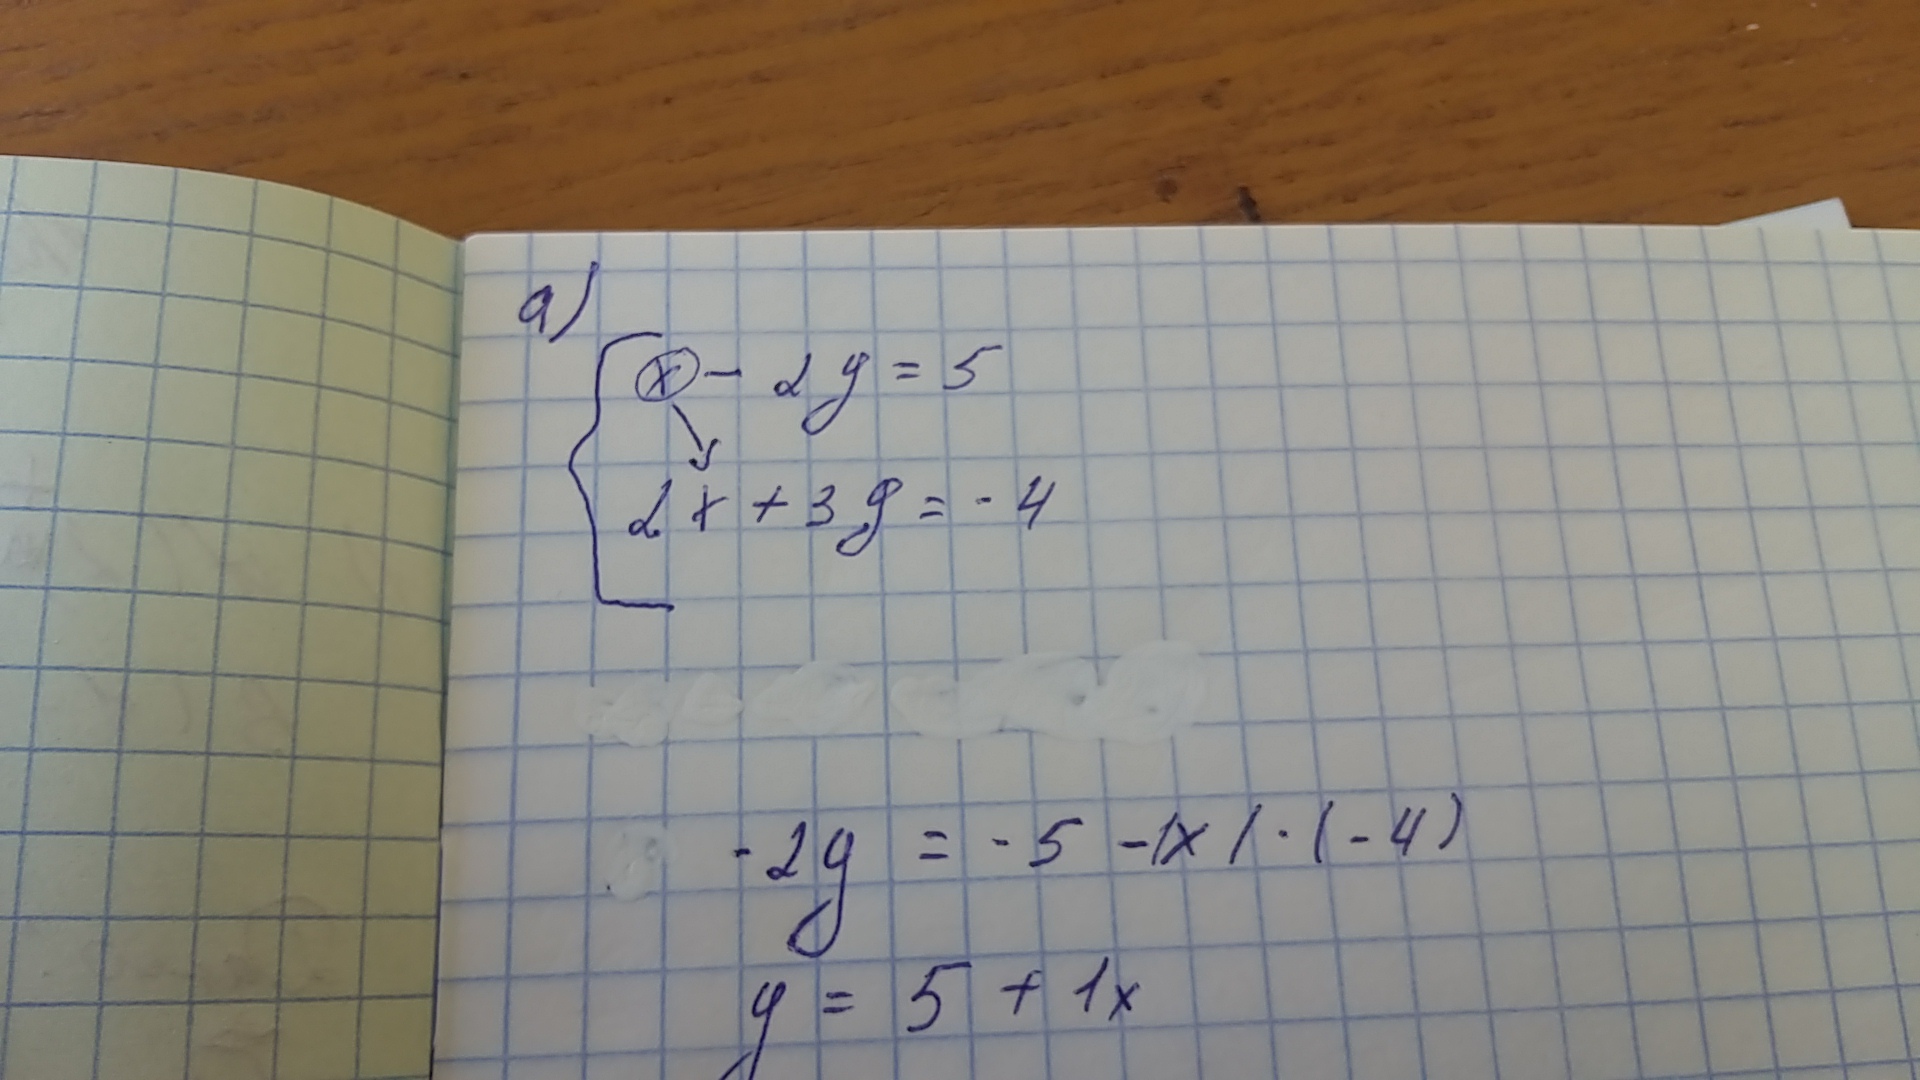 a)
x - 2y = 5
2x + 3y = - 4
- 2y = - 5 - 1x / · ( - 4 )
y = 5 + 1x